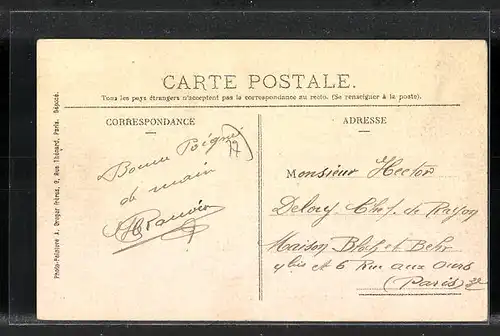 CARTE POSTALE.
Tous les pays étrangers n'acceptent pas la correspondance au recto. (Se renseigner à la poste).
CORRESPONDANCE
ADRESSE
Bonne Poignée
de main
77
Monsieur Hector
Chef de Rayon
Maison et
4 bis et 6 Rue aux Ours
(Paris)
Photo-Peinture A. Dreger Frères, 9, Rue Thénard, Paris. Déposé.